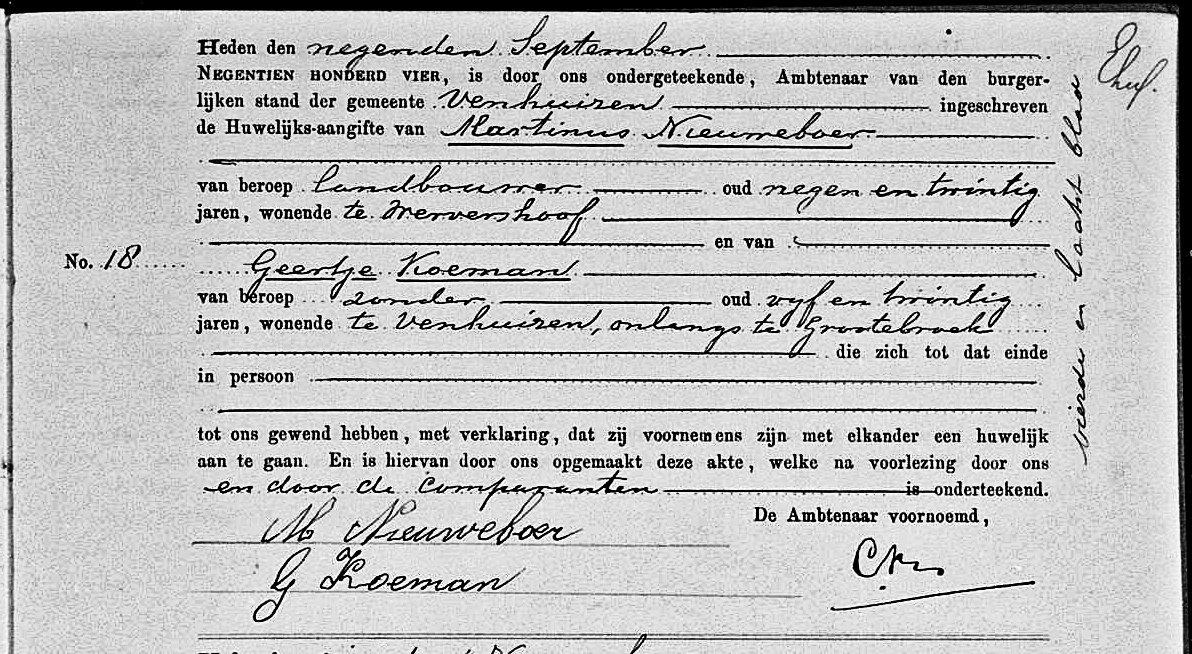 Heden den negenden September
NEGENTIEN HONDERD VIER, is door ons ondergeteekende, Ambtenaar van den burger-
lijken stand der gemeente Venhuizen ingeschreven
de Huwelijks-aangifte van Martinus Nieuweboer
van beroep landbouwer oud negen en twintig
jaren, wonende te Wervershoof
en van
No. 18
Geertje Koeman
van beroep zonder oud vyf en twintig
jaren, wonende te Venhuizen, onlangs te Grootebroek
die zich tot dat einde
in persoon
tot ons gewend hebben, met verklaring, dat zij voornemens zijn met elkander een huwelijk
aan te gaan. En is hiervan door ons opgemaakt deze akte, welke na voorlezing door ons
en door de comparanten is onderteekend.
De Ambtenaar voornoemd,
M Nieuweboer
G Koeman
vierde en laatst blad